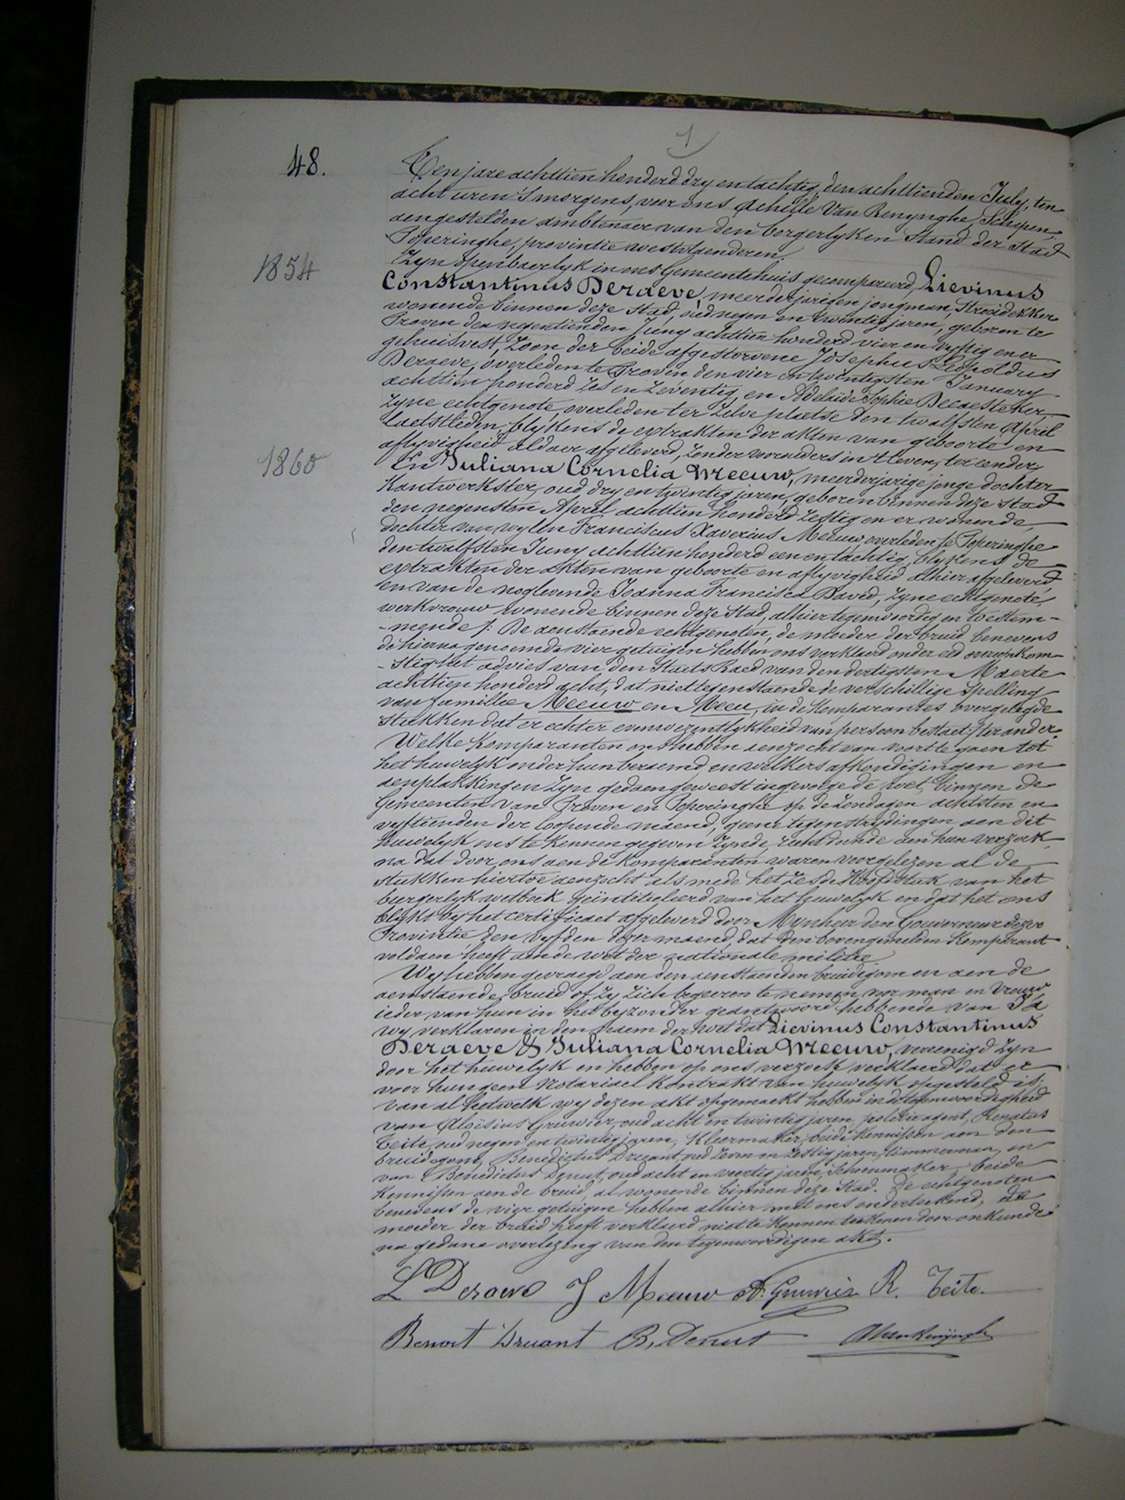 1
48.
Ten jare achttien honderd dry en tachtig, den achttienden July, ten
acht uren 's morgens, voor ons Achille Van Renynghe, Schepen,
aengestelden ambtenaer van den borgerlyken Stand der Stad
Poperinghe, provintie westvlaenderen.
1854
Zyn openbaerlyk in ons Gemeentehuis gecompareerd Lievinus
Constantinus Deraeve, meerderjarigen jongman, Strooidekker
wonende binnen deze Stad, oud negen en twintig jaren, geboren te
Proven den negentienden Juny achttien honderd vier en vyftig en er
gehuisvest, Zoon der beide afgestorvene Josephus Leopoldus
Deraeve, overleden te Proven den vier en twintigsten January
achttien honderd zes en zeventig, en Adelaide Sophie Decaesteker,
zyne echtgenote, overleden ter zelve plaetse den twalfsten April
laetstleden, blykens de extrakten der akten van geboorte en
aflyvigheid aldaer afgeleverd, zonder voorouders in 't leven, ter eender
1860
En Juliana Cornelia Meeuw, meerderjarige jonge dochter
Kantwerkster, oud dry en twintig jaren, geboren binnen deze Stad
den negensten April achttien honderd zestig en er wonende,
dochter van wylen Franciscus Xaverius Meeuw overleden te Poperinghe
den twalfsten Juny achttien honderd een en tachtig, blykens de
extrakten der akten van geboorte en aflyvigheid alhier afgeleverd
en van de noglevende Joanna Francisca David, zyne echtgenote,
werkvrouw wonende binnen deze Stad, alhier tegenwoordig en toestem-
-mende /: De aenstaende echtgenoten, de moeder der bruid benevens
de hierna genoemde vier getuigen hebben ons verklaerd onder eed overeenkom-
-stig het advies van den Staets Raed van den dertigsten Maerte
achttien honderd acht, dat niettegenstaende de verschillige spelling
van familie Meeuw en Meeu, in de Komparantes overgelegde
stukken dat er echter eenwezentlykheid van persoon bestaet / ter ander.
Welke Komparanten ons hebben aenzocht van voort te gaen tot
het huwelyk onder hun beraemd en welkers afkondigingen en
aenplakkingen zyn gedaen geweest ingevolge de wet, binnen de
Gemeenten van Proven en Poperinghe op de zondagen achtsten en
vyftienden der loopende maend, geene tegenstrydingen aen dit
huwelyk ons te kennen gegeven zynde, recht doende aen hun verzoek,
na dat door ons aen de Komparanten waren voorgelezen al de
stukken hiertoe aenzocht als mede het zesde Hoofdstuk van het
burgerlyk wetboek geintituleerd van het huwelyk en dat het ons
blykt by het certificaet afgeleverd door Mynheer den Gouverneur dezer
Provintie den vyfden dezer maend, dat den bovengemelden Komparant
voldaen heeft aen de wet der nationale militie
Wy hebben gevraegd aen den aenstaenden bruidegom en aen de
aenstaende bruid of zy zich begeeren te nemen voor man en vrouw
ieder van hun in het byzonder geantwoord hebbende van Ja
wy verklaren in den naem der wet dat Lievinus Constantinus
Deraeve & Juliana Cornelia Meeuw, vereenigd zyn
door het huwelyk en hebben op ons verzoek verklaerd dat er
voor hun geen Notarieel Kontrakt van huwelyk opgesteld is
van al hetwelk wy dezen akt opgemaekt hebben in de tegenwoordigheid
van Aloisius Gruwier, oud acht en twintig jaren, policieagent, Renatus
Teite, oud negen en twintig jaren, Kleermaker, beide Kennissen aen den
bruidegom, Benedictus Druant, oud zeven en zestig jaren, timmerman, en
van Benedictus Denut, oud acht en veertig jaren, Schoenmaker, beide
Kennissen aen de bruid, al wonende binnen deze Stad. De echtgenoten
benevens de vier getuigen hebben alhier met ons onderteekend, de
moeder der bruid heeft verklaerd niet te Kennen teekenen door onkunde
na gedane overlezing van den tegenwoordigen akt.
L Deraeve J Meeuw A. Gruwier R. Teite.
Benoit Druant B, Denut AVanRenynghe